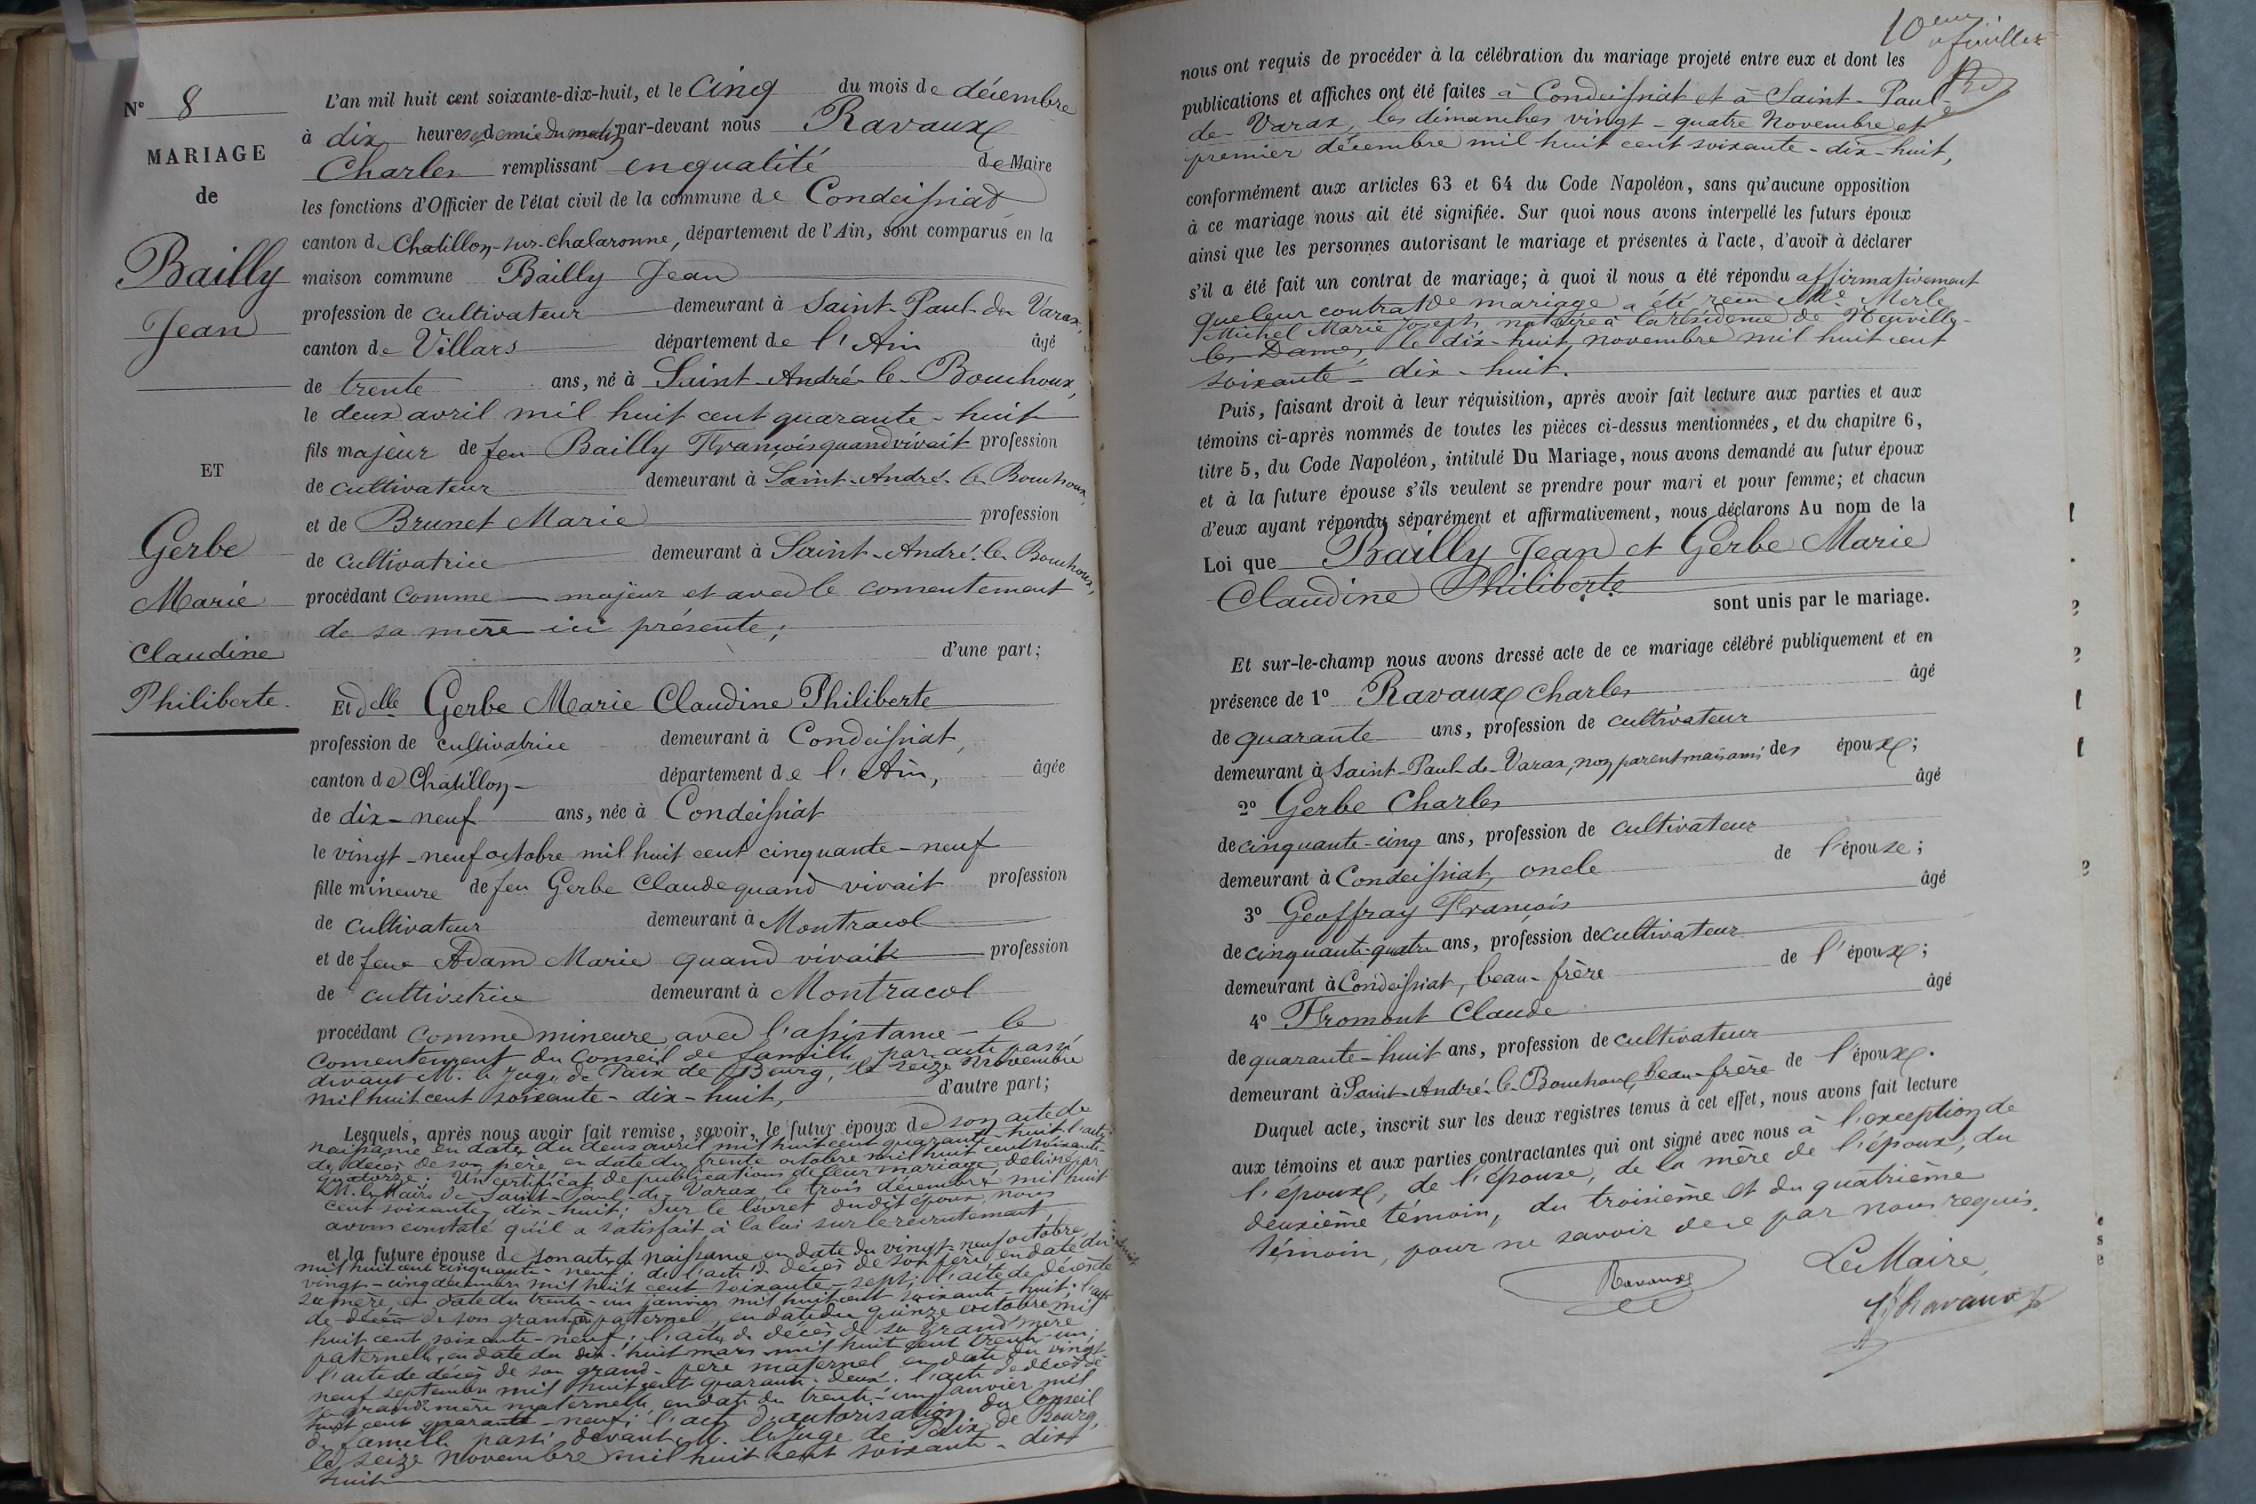 N° 8
MARIAGE
de
Bailly
Jean
ET
Gerbe
Marie
Claudine
Philiberte.
L'an mil huit cent soixante-dix-huit, et le cinq du mois de décembre
à dix heures et demie du matin par-devant nous Ravaux
Charles remplissant en qualité de Maire
les fonctions d'Officier de l'état civil de la commune de Condeissiat
canton de Chatillon-sur-Chalaronne, département de l'Ain, sont comparus en la
maison commune Bailly Jean
profession de cultivateur demeurant à Saint-Paul-de Varax,
canton de Villars département de l'Ain âgé
de trente ans, né à Saint-André-le-Bouchoux,
le deux avril mil huit cent quarante-huit
fils majeur de feu Bailly François quand vivait profession
de cultivateur demeurant à Saint-André-le-Bouchoux
et de Brunet Marie profession
de cultivatrice demeurant à Saint-André-le-Bouchoux,
procédant comme majeur et avec le consentement
de sa mère ici présente;
d'une part;
Et delle Gerbe Marie Claudine Philiberte
profession de cultivatrice demeurant à Condeissiat,
canton de Chatillon- département de l'Ain, âgée
de dix-neuf ans, née à Condeissiat
le vingt-neuf octobre mil huit cent cinquante-neuf
fille mineure de feu Gerbe Claude quand vivait profession
de cultivateur demeurant à Montracol
et de feue Adam Marie quand vivait profession
de cultivatrice demeurant à Montracol
procédant comme mineure avec l'assistance - le
consentement du Conseil de famille, par acte passé
devant M. le Juge de Paix de Bourg, le seize Novembre
mil huit cent soixante-dix-huit, d'autre part;
Lesquels, après nous avoir fait remise, savoir, le futur époux de son acte de
naissance en date du deux avril mil huit cent quarante-huit l'acte
de décès de son père en date du trente octobre mil huit cent soixante-
quatorze; Un certificat de publications de leur mariage, délivré par
M. le Maire de Saint-Paul-de-Varax le trois décembre mil huit
cent soixante-dix-huit; Sur le livret dudit époux, nous
avons constaté qu'il a satisfait à la loi sur le recrutement
et la future épouse de son acte de naissance en date du vingt-neuf octobre
mil huit cent cinquante-neuf; de l'acte de décès de son père en date du
vingt-cinq décembre mil huit cent soixante-sept; l'acte de décès de
sa mère, en date du trente-un janvier mil huit cent soixante-huit; l'acte
de décès de son grand père paternel, en date du quinze octobre mil
huit cent soixante-neuf; l'acte de décès de sa grand'mère
paternelle, en date du dix-huit mars mil huit cent trente-un;
l'acte de décès de son grand-père maternel en date du vingt-
neuf septembre mil huit cent quarante-deux; l'acte de décès de
sa grand'mère maternelle, en date du trente-un janvier mil
huit cent quarante-neuf; l'acte d'autorisation du Conseil
de famille passé devant M. le Juge de Paix de Bourg,
le seize Novembre mil huit cent soixante-dix
huit
10eme feuillet
nous ont requis de procéder à la célébration du mariage projeté entre eux et dont les
publications et affiches ont été faites à Condeissiat et à Saint-Paul-
de-Varax, les dimanches vingt-quatre Novembre et
premier décembre mil huit cent soixante-dix-huit,
conformément aux articles 63 et 64 du Code Napoléon, sans qu'aucune opposition
à ce mariage nous ait été signifiée. Sur quoi nous avons interpellé les futurs époux
ainsi que les personnes autorisant le mariage et présentes à l'acte, d'avoir à déclarer
s'il a été fait un contrat de mariage; à quoi il nous a été répondu affirmativement
que leur contrat de mariage a été reçu Me Merle
Michel Marie Joseph, notaire à la résidence de Neuville-
les-Dames, le dix-huit novembre mil huit cent
soixante-dix-huit.
Puis, faisant droit à leur réquisition, après avoir fait lecture aux parties et aux
témoins ci-après nommés de toutes les pièces ci-dessus mentionnées, et du chapitre 6,
titre 5, du Code Napoléon, intitulé Du Mariage, nous avons demandé au futur époux
et à la future épouse s'ils veulent se prendre pour mari et pour femme; et chacun
d'eux ayant répondu séparément et affirmativement, nous déclarons Au nom de la
Loi que Bailly Jean et Gerbe Marie
Claudine Philiberte
sont unis par le mariage.
Et sur-le-champ nous avons dressé acte de ce mariage célébré publiquement et en
présence de 1° Ravaux Charles âgé
de quarante ans, profession de cultivateur
demeurant à Saint-Paul-de-Varax, non parent mais ami des époux;
2° Gerbe Charles âgé
de cinquante-cinq ans, profession de cultivateur
demeurant à Condeissiat, oncle de l'épouse;
3° Geoffray François âgé
de cinquante-quatre ans, profession de cultivateur
demeurant à Condeissiat, beau-frère de l'époux;
4° Fromont Claude âgé
de quarante-huit ans, profession de cultivateur
demeurant à Saint-André-le-Bouchoux, beau-frère de l'époux.
Duquel acte, inscrit sur les deux registres tenus à cet effet, nous avons fait lecture
aux témoins et aux parties contractantes qui ont signé avec nous à l'exception de
l'époux, de l'épouse, de la mère de l'époux, du
deuxième témoin, du troisième et du quatrième
témoin, pour ne savoir de ce par nous requis.
Le Maire,
Ravaux
Ch Ravaux